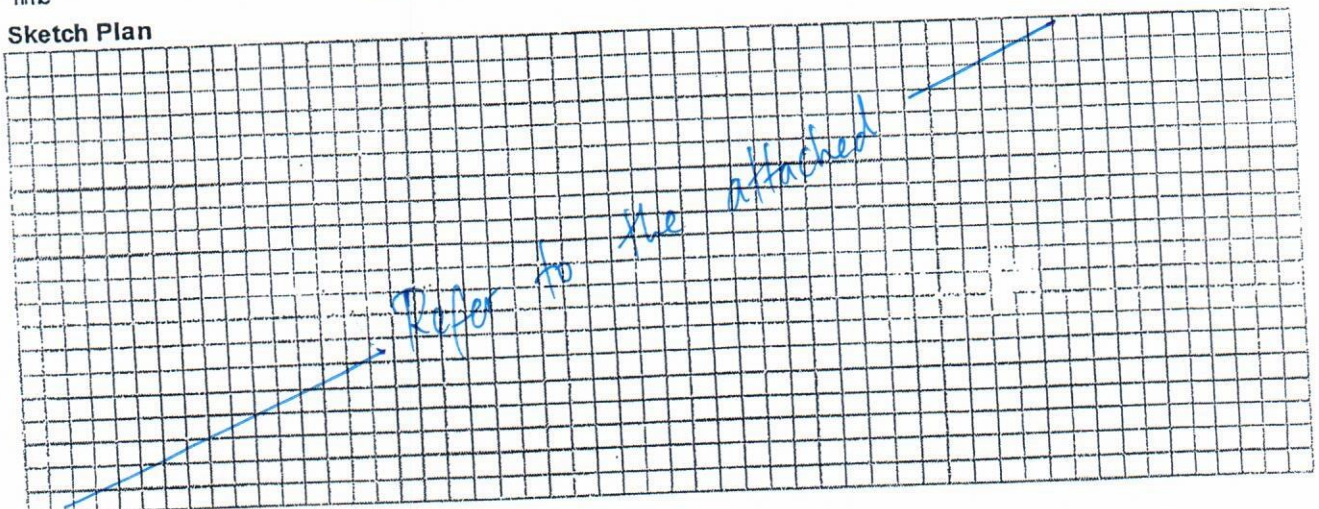 Sketch Plan
Refer to the attached